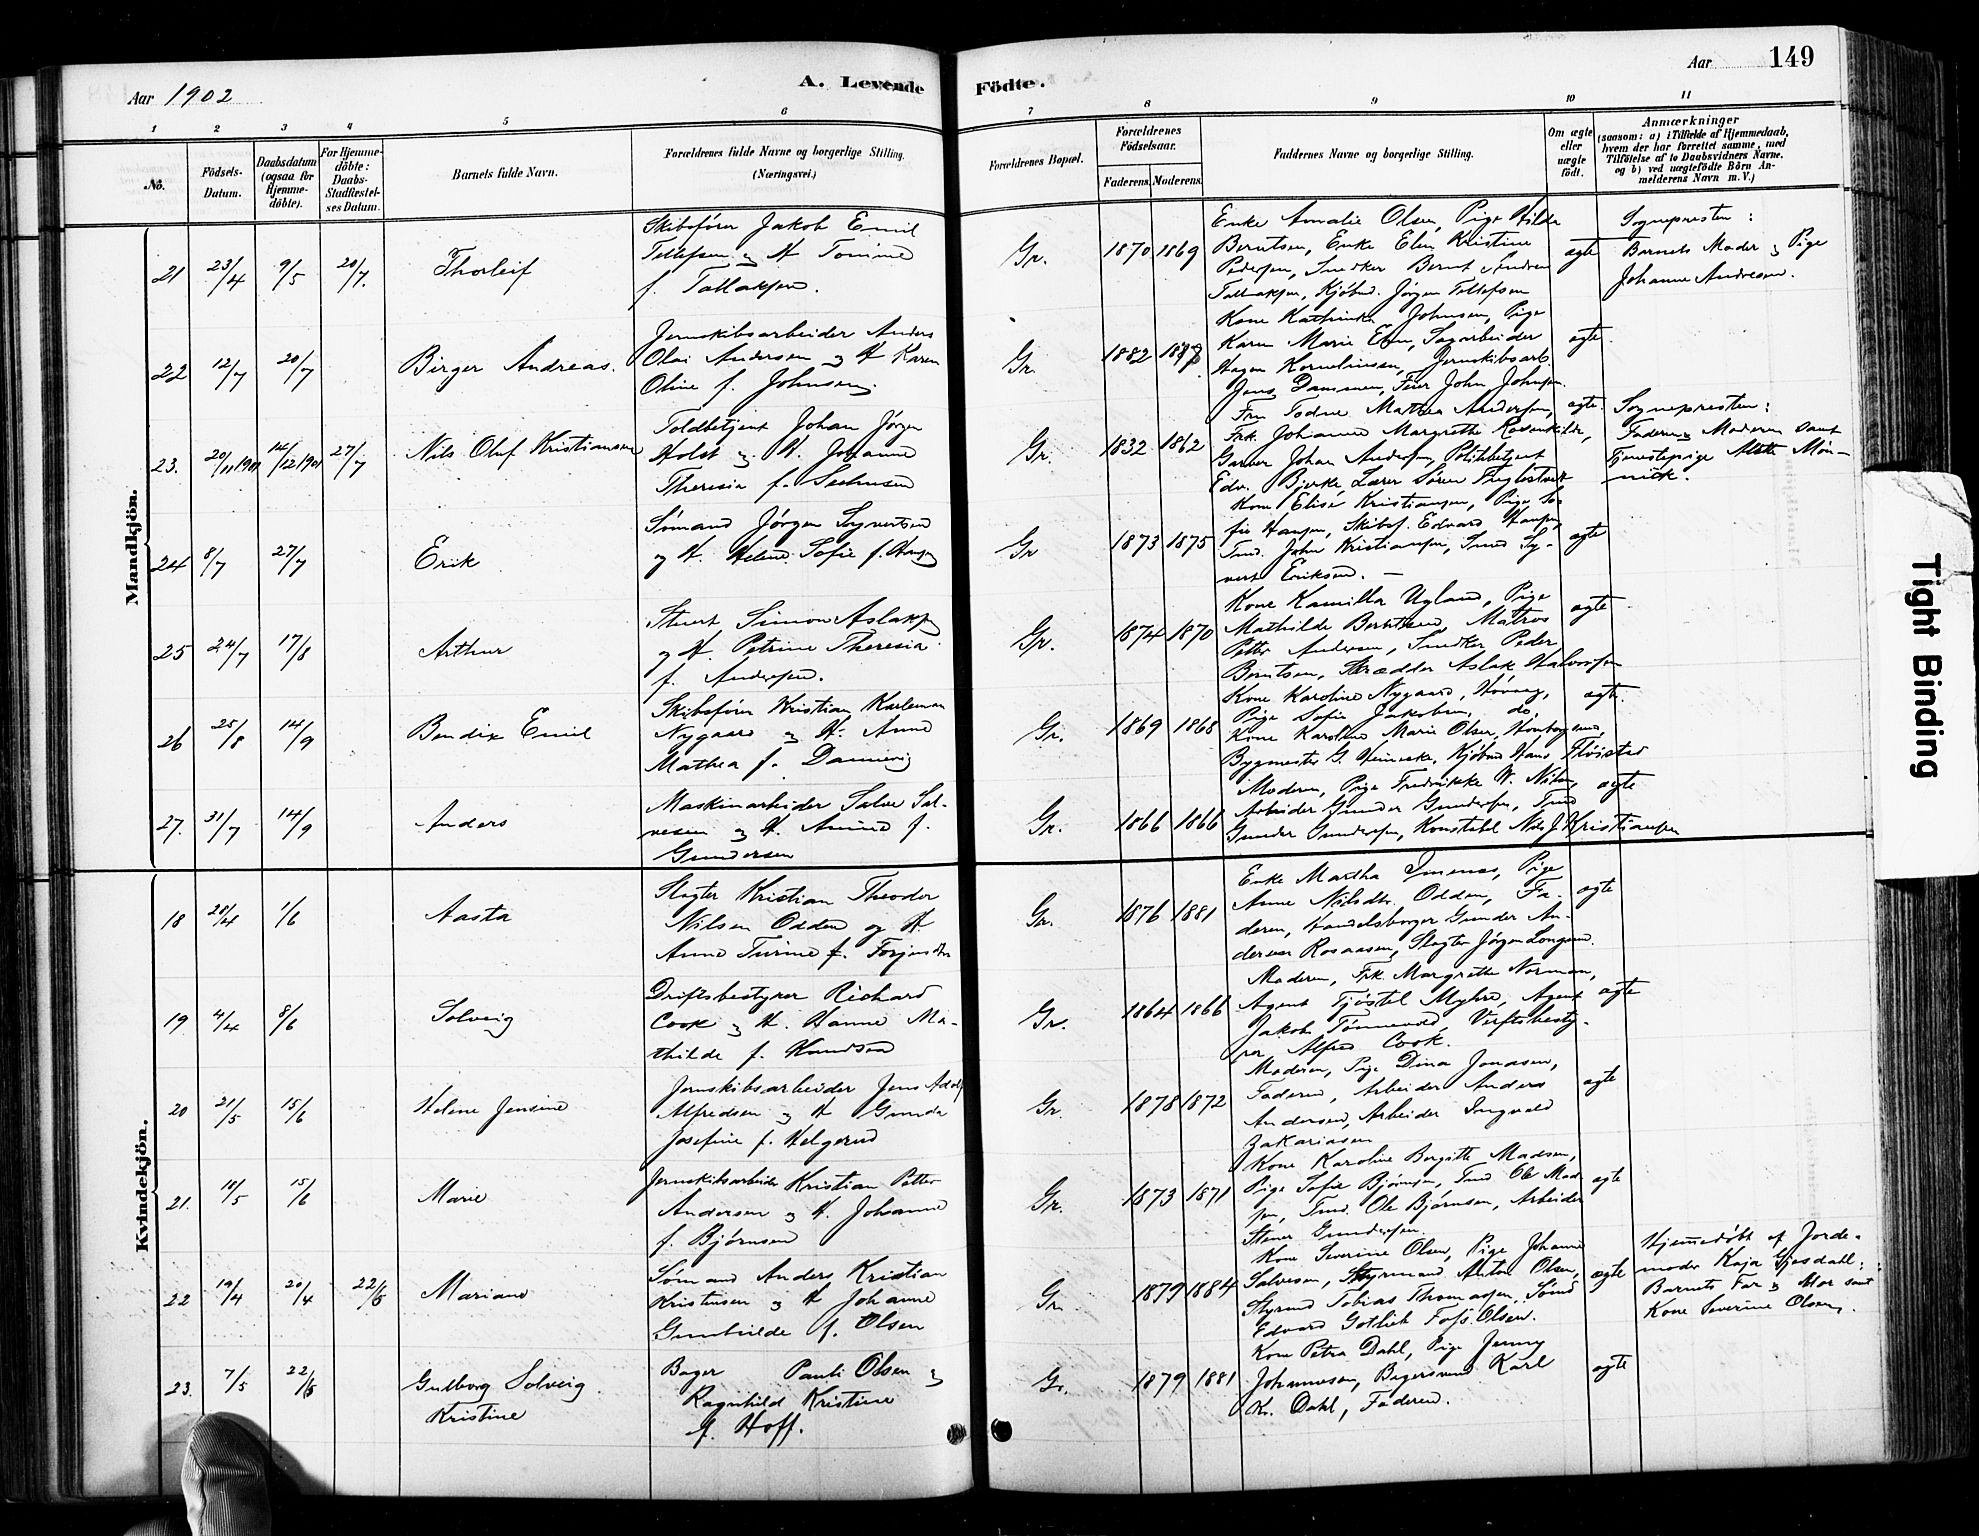 Aar 1902
A. Levende
Födte.
Aar
149
1 2 3 4 5 6 7 8 9 10 11
No.
Födsels-
Datum.
Daabsdatum
(ogsaa for
Hjemme-
döbte).
For Hjemme-
döbte:
Daabs-
Stadfæstel-
ses Datum.
Barnets fulde Navn.
Forældrenes fulde Navne og borgerlige Stilling.
(Næringsvei.)
Forældrenes Bopæl.
Forældrenes
Födselsaar.
Faderens. Moderens.
Faddernes Navne og borgerlige Stilling.
Om ægte
eller
uægte
födt.
Anmærkninger
(saasom: a) i Tilfælde af Hjemmedaab,
hvem der har forrettet samme, med
Tilföielse af to Daabsvidners Navne,
og b) ved uægtefödte Börn An-
melderens Navn m. V.)
Mandkjön.
21 23/4 9/5 20/7.
Thorleif
Skibsfører Jakob Emil
Tellefsen og H Tomine
f. Tallaksen.
Gr.
1870 1869
Enke Amalie Olsen, Pige Hilda
Berntsen, Enke Elen Kristine
Pedersen, Snedker Bernt Andreas
Tallaksen, Kjøbmd. Jørgen Tellefsen
ægte
Sognepresten:
Barnets Moder og Pige
Johanne Andresen.
22 12/7 20/7
Birger Andreas.
Jernskibsarbeider Anders
Olai Andersen og H Karen
Oline f. Johnsen.
Gr.
1882
Kone Kathinka Johnsen, Pige
Karen Marie, Sagarbeider
Hagen Korneliussen, Jernskibsarb.
Jens Dammen, Feier John Johnsen.
ægte.
23. 20/11 1901 14/12 1901 27/7
Nils Oluf Kristiansen
Toldbetjent Johan Jørgen
Holst og H. Johanne
Theresia f.
Gr.
1832 1862
Fru Todne Mathea Andersen,
Frk. Johanne Margrethe Rosenkilde,
Garver Johan Andersen, Politibetjent
Edv. Bjerke Lærer Søren
ægte.
Sognepresten:
Faderen og Moderen samt
Tjenestepige Mon-
nick.
24 8/7 27/7
Erik
Sømand Jørgen Syvertsen
og H. Helene Sofie f. Hansen
Gr
1873 1875
Kone Elise Kristiansen, Pige So-
fie Hansen, Skibsf. Edvard Hansen,
Tmd. John Kristiansen, Smed Sy-
vert Eriksen. —
ægte
25 24/7 17/8
Arthur
Stuert Simon Aslaksen
og H. Petrine Theresia
f. Andersen.
Gr.
1874 1870
Kone Kamilla Ugland, Pige
Mathilde Berntsen, Matros
Petter Andersen, Snedker Peder
Berntsen, Skrædder Aslak Halvorsen
ægte
26 25/8 14/9
Bendix Emil
Skibsfører Kristian Karleman
Nygaard og H. Anne
Mathea f. Dannevig
Gr.
1869 1868
Kone Karoline Nygaard, Høvaag,
Pige Sofie Jakobsen, do,
Kone Karoline Marie Olsen,
Bygmester G. Heinecke, Kjøbmd Hans Fløistad
ægte.
27. 31/7 14/9
Anders
Maskinarbeider Salve Sal-
vesen og H. Amine f.
Gundersen
Gr.
1866 1866
Moderen, Pige Fredrikke W. Nilsen,
Arbeider Gunder Gundersen, Tmd
Gunder Gundersen, Konstabel Nils J Kristiansen
ægte
Kvindekjön.
18 20/4 1/6
Aasta
Slagter Kristian Theodor
Nilsen Odden og H.
Anne Turine f. Torjusdtr
Gr.
1876 1881
Enke Martha, Pige
Anne Nilsdtr. Odden, Fa-
deren, Handelsborger Gunder An-
dersen Rosaasen, Slagter Jørgen Longum.
ægte
19. 4/4 8/6
Solveig
Driftsbestyrer Richard
Cook og H. Hanne Ma-
thilde f. Knudsen
Gr.
1864 1866
Moderen, Frk. Margrethe Norman,
Agent Tjøstel Myhre, Agent
Jakob Tønnevold, Verftsbesty-
rer Alfred Cook.
ægte
20 21/5 15/6
Helene Jensine
Jernskibsarbeider Jens Adolf
Alfredsen og H Gunda
Josefine f. Helgerud
Gr.
1878 1872
Moderen, Pige Dina Jonassen,
Faderen, Arbeider Anders
Andersen, Arbeider Ingvald
Zakariasen
ægte
21. 10/5 15/6
Marie
Jernskibsarbeider Kristian Petter
Andersen og H. Johanne
f. Bjørnsen
Gr.
1873 1871
Kone Karoline Borgitte Madsen,
Pige Sofie Bjørnsen, Tmd Ole Mad-
sen, Tmd. Ole Bjørnsen, Arbeider
Stener Gundersen
ægte
22 19/4 20/4 22/6
Mariane
Sømand Anders Kristian
Kristensen og H Johanne
Gunhilde f. Olsen
Gr.
1879 1884
Kone Severine Olsen, Pige Johanne
Salvesen, Styrmand Anton Olsen,
Styrmd Tobias Thomassen, Sømd
Edvard Gotlieb Olsen.
ægte
Hjemmedøbt af Jorde-
moder Kaja Gjesdahl:
Barnets Far og Mor samt
Kone Severine Olsen.
23. 7/5 22/6
Gudborg Solveig
Kristine
Bager Pauli Olsen og
Ragnhild Kristine
f. Hoff.
Gr.
1879 1881
Kone Petra Dahl, Pige Jenny
Johannesen, Bagersvend Karl
Kr. Dahl, Faderen.
ægte
Tight Binding